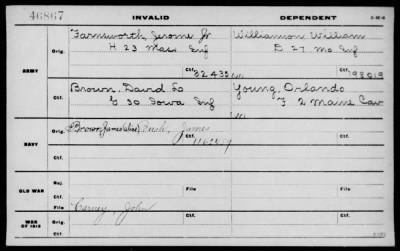 46867
INVALID
DEPENDENT
3-35-6
ARMY
Orig.
Farnsworth, Jerome Jr
H 23 Mass Inf
82435
Williamson William
D 27 Mo Inf
98019
Ctf.
Brown, David
30 Iowa Inf
Young, Orlando
F 2 Maine Cav
NAVY
Orig.
Brown, James (alias) Bush, James
Ctf.
Ctf.
OLD WAR
Rej.
Ctf.
File
File
WAR OF 1812
Orig.
Carney John
Ctf.
Ctf.